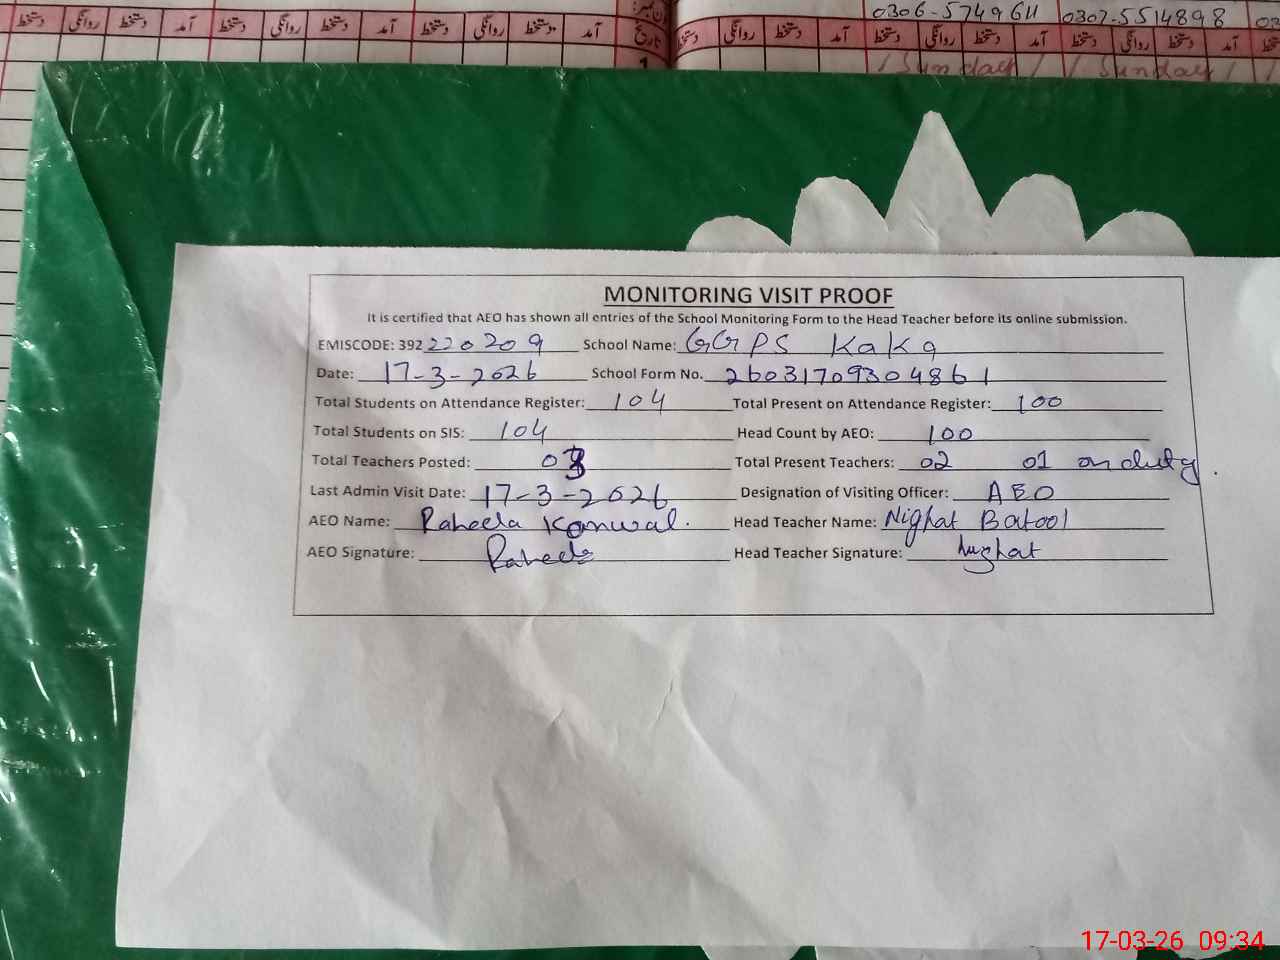 0306-5749611 0307-5514898
دستخط روانگی دستخط آمد دستخط روانگی دستخط آمد دستخط روانگی دستخط آمد تاریخ
دستخط روانگی دستخط آمد دستخط روانگی دستخط آمد دستخط روانگی دستخط آمد دستخط
1 / Sunday / / Sunday / /
MONITORING VISIT PROOF
It is certified that AEO has shown all entries of the School Monitoring Form to the Head Teacher before its online submission.
EMISCODE: 392 220209 School Name: GGPS Kaka
Date: 17-3-2026 School Form No. 26031709304861
Total Students on Attendance Register: 104 Total Present on Attendance Register: 100
Total Students on SIS: 104 Head Count by AEO: 100
Total Teachers Posted: 03 Total Present Teachers: 02 01 on duty.
Last Admin Visit Date: 17-3-2026 Designation of Visiting Officer: AEO
AEO Name: Raheela Kanwal. Head Teacher Name: Nighat Batool
AEO Signature: Raheela Head Teacher Signature: Nighat
17-03-26 09:34